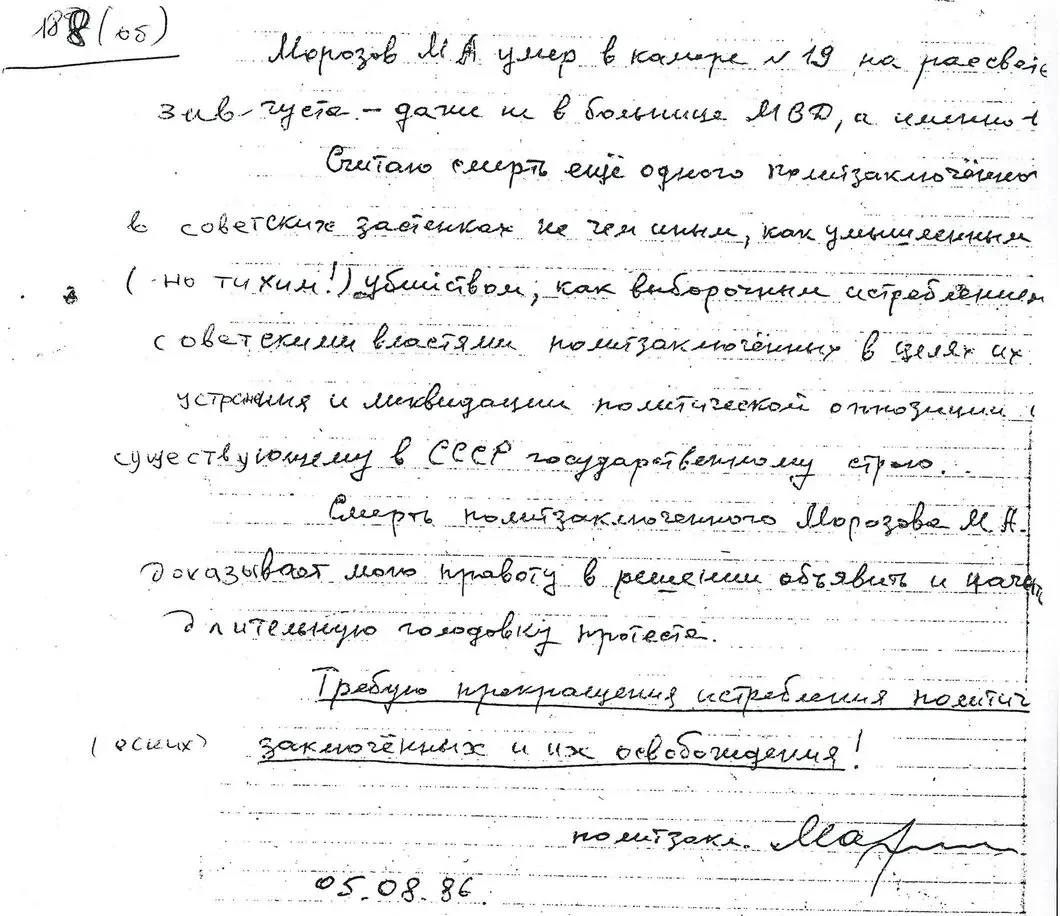 188 (об)
Морозов М А умер в камере № 19 на рассвете
3 августа – даже не в больнице МВД, а именно
Считаю смерть ещё одного политзаключённо
в советских застенках не чем иным, как умышленным
(но тихим!) убийством, как выборочным истреблением
советскими властями политзаключённых в целях их
устранения и ликвидации политической оппозиции
существующему в СССР государственному строю.
Смерть политзаключенного Морозова М.А.
доказывает мою правоту в решении объявить и начать
длительную голодовку протеста.
Требую прекращения истребления политич
(еских) заключённых и их освобождения!
политзакл.
05.08.86.